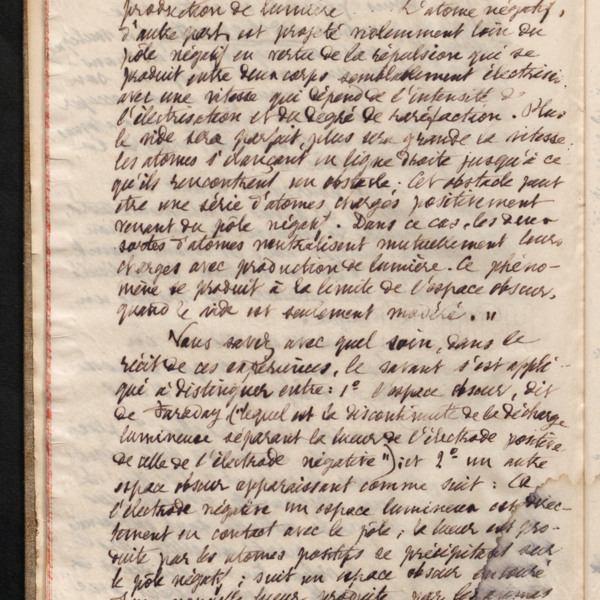 production de lumière. L'atome négatif,
d'autre part, est projeté violemment loin du
pôle négatif en vertu de la répulsion qui se
produit entre deux corps semblablement électrisés
avec une vitesse qui dépend de l'intensité de
l'électrisation et du degré de raréfaction. Plus
le vide sera parfait, plus sera grande la vitesse:
les atomes s'élançant en ligne droite jusqu'à ce
qu'ils rencontrent un obstacle; Cet obstacle peut
être une série d'atomes chargés positivement
venant du pôle négatif. Dans ce cas, les deux
sortes d'atomes neutralisent mutuellement leurs
charges avec production de lumière. Ce phéno-
mène se produit à la limite de l'espace obscur,
quand le vide est seulement modéré. "
Vous savez avec quel soin, dans le
récit de ces expériences, le savant s'est appli-
qué à distinguer entre: 1º l'espace obscur, dit
de Faraday ("lequel est la discontinuité de la décharge
lumineuse séparant la lueur de l'électrode positive
de celle de l'électrode négative"); et 2º un autre
espace obscur apparaissant comme suit: "À
l'électrode négative un espace lumineux est direc-
tement en contact avec le pôle; la lueur est pro-
duite par les atomes positifs se précipitant sur
le pôle négatif; suit un espace obscur entouré
nouvelle lueur produite par les atomes